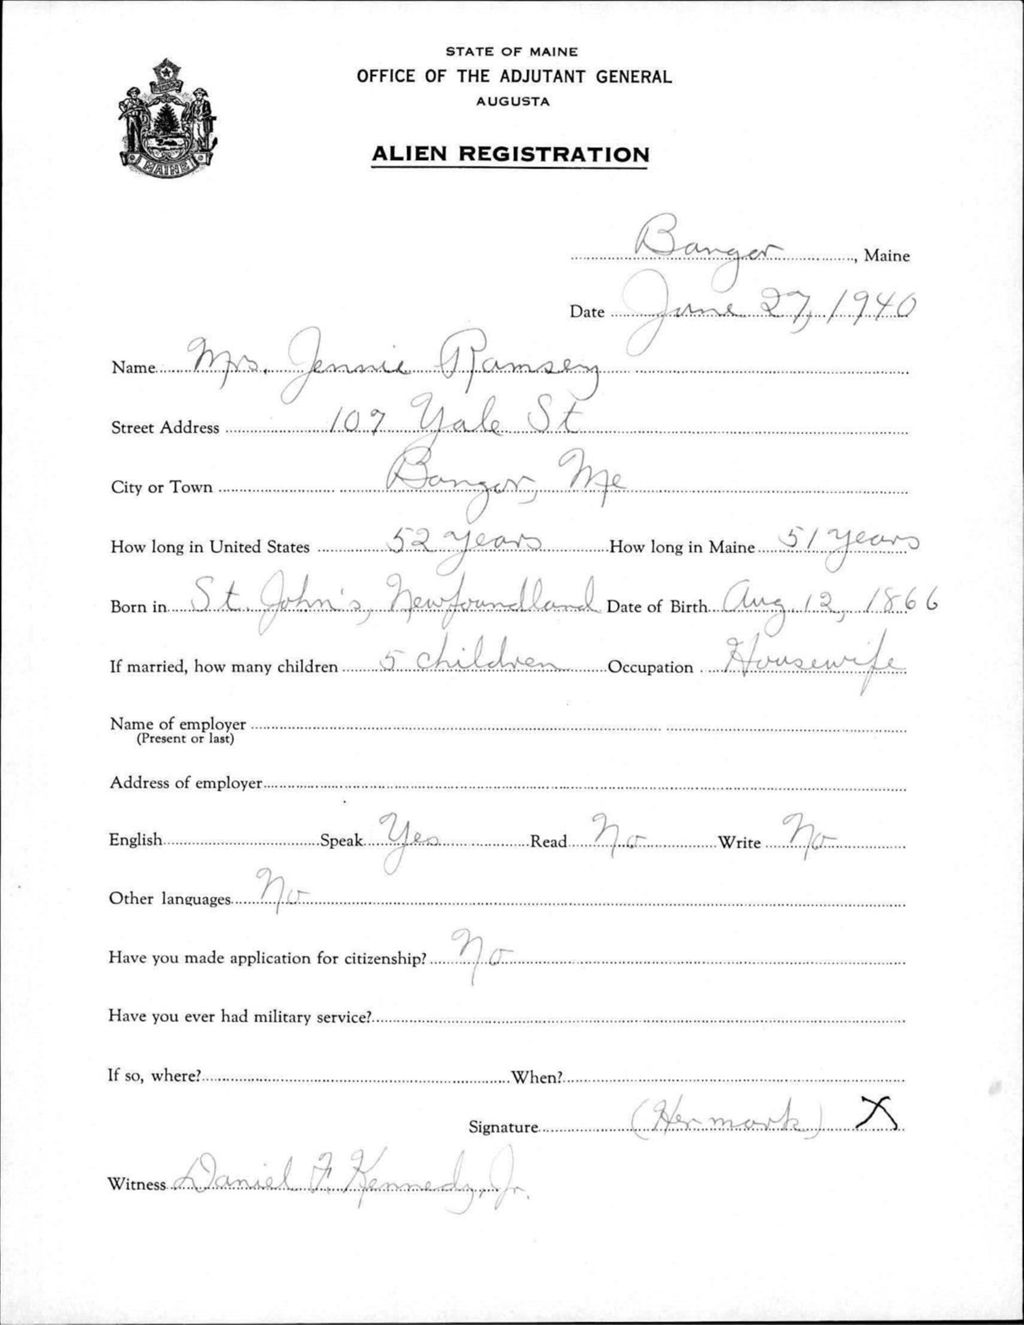 STATE OF MAINE
OFFICE OF THE ADJUTANT GENERAL
AUGUSTA
ALIEN REGISTRATION
MAINE
Bangor, Maine
Date June 27, 1940
Name Mrs. Jennie Ramsey
Street Address 107 Yale St
City or Town Bangor, Me
How long in United States 52 years How long in Maine 51 years
Born in St. John's, Newfoundland Date of Birth Aug. 12, 1866
If married, how many children 5 children Occupation Housewife
Name of employer
(Present or last)
Address of employer
English Speak Yes Read No Write No
Other languages No
Have you made application for citizenship? No
Have you ever had military service?
If so, where? When?
Signature (Her mark) X
Witness Daniel F. Kennedy, Jr.